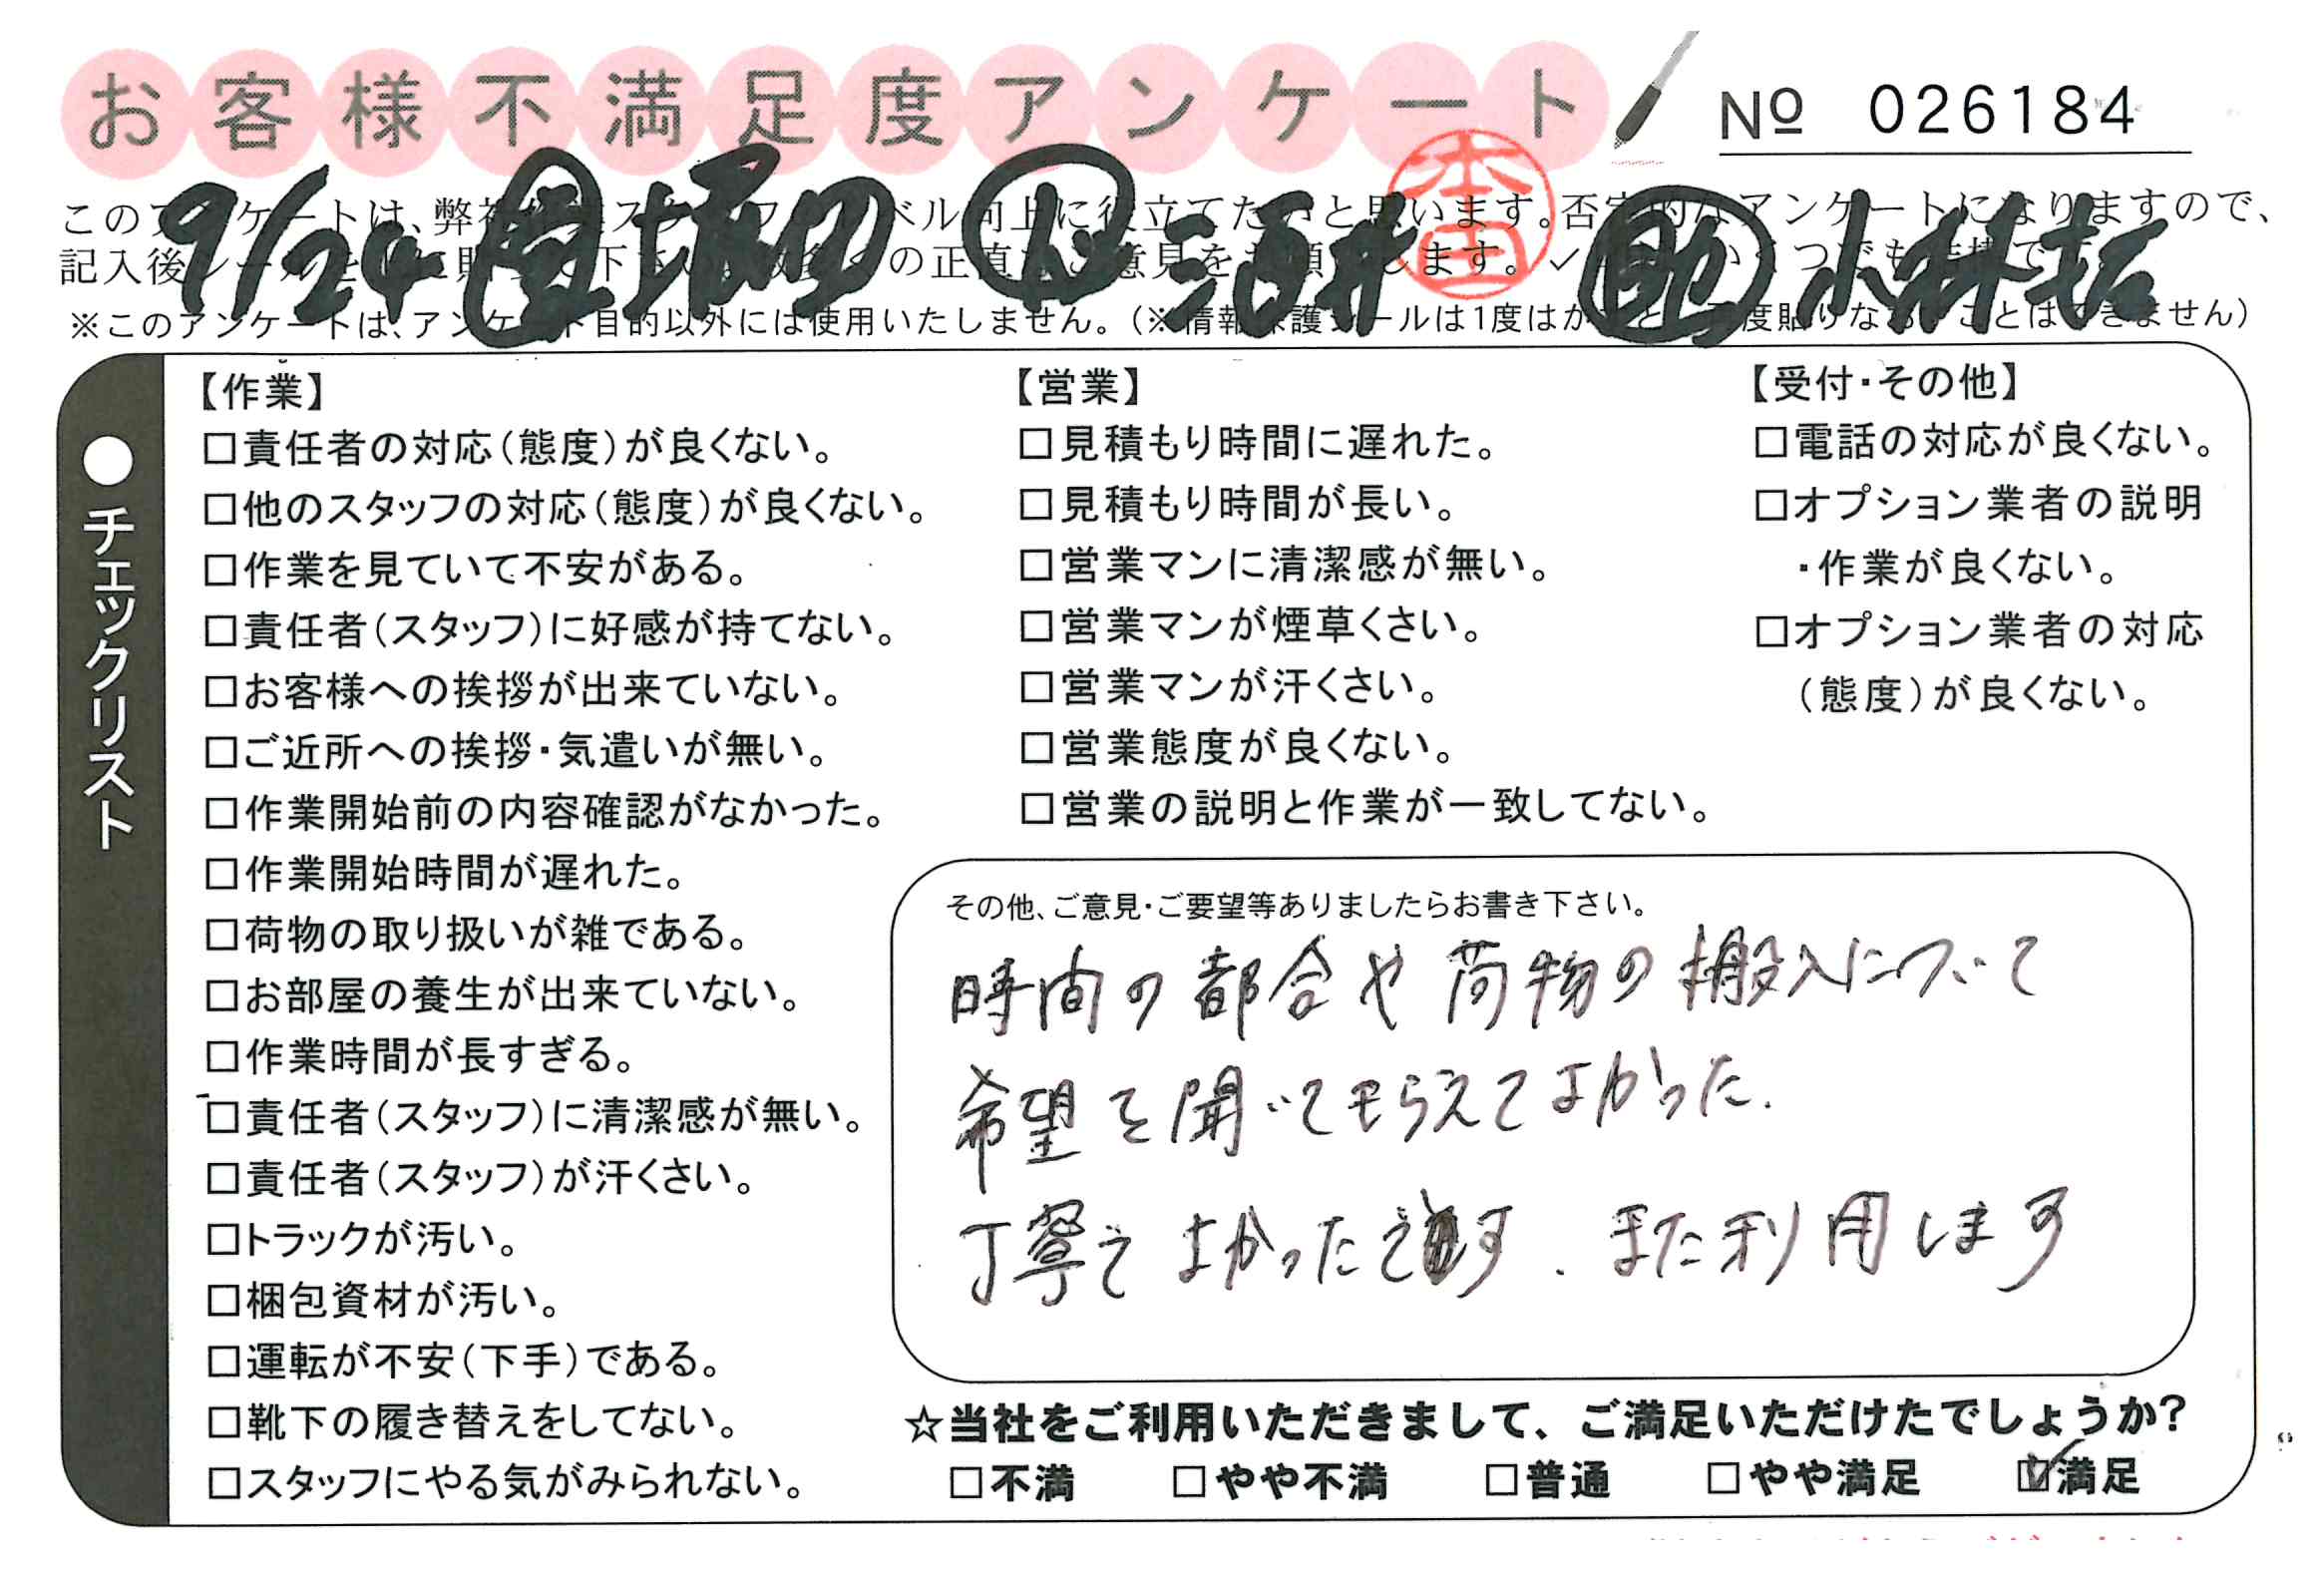 お客様不満足度アンケート
№ 026184
9/24 堀切 酒井 本田 助 小林拓
このアンケートは、弊社 スタッフ レベル向上に役立てたいと思います。否定的なアンケートになりますので、
記入後シールを 下さい の正直なご意見をお願いします。✓ いくつでも
※このアンケートは、アンケート目的以外には使用いたしません。（※情報保護シールは1度はがすと再度貼りなおすことはできません）
●チェックリスト
【作業】
□責任者の対応（態度）が良くない。
□他のスタッフの対応（態度）が良くない。
□作業を見ていて不安がある。
□責任者（スタッフ）に好感が持てない。
□お客様への挨拶が出来ていない。
□ご近所への挨拶・気遣いが無い。
□作業開始前の内容確認がなかった。
□作業開始時間が遅れた。
□荷物の取り扱いが雑である。
□お部屋の養生が出来ていない。
□作業時間が長すぎる。
□責任者（スタッフ）に清潔感が無い。
□責任者（スタッフ）が汗くさい。
□トラックが汚い。
□梱包資材が汚い。
□運転が不安（下手）である。
□靴下の履き替えをしてない。
□スタッフにやる気がみられない。
【営業】
□見積もり時間に遅れた。
□見積もり時間が長い。
□営業マンに清潔感が無い。
□営業マンが煙草くさい。
□営業マンが汗くさい。
□営業態度が良くない。
□営業の説明と作業が一致してない。
【受付・その他】
□電話の対応が良くない。
□オプション業者の説明
・作業が良くない。
□オプション業者の対応
（態度）が良くない。
その他、ご意見・ご要望等ありましたらお書き下さい。
時間の都合や荷物の搬入について
希望を聞いてもらえてよかった.
丁寧でよかったです. また利用します
☆当社をご利用いただきまして、ご満足いただけたでしょうか?
□不満 □やや不満 □普通 □やや満足 ☑満足